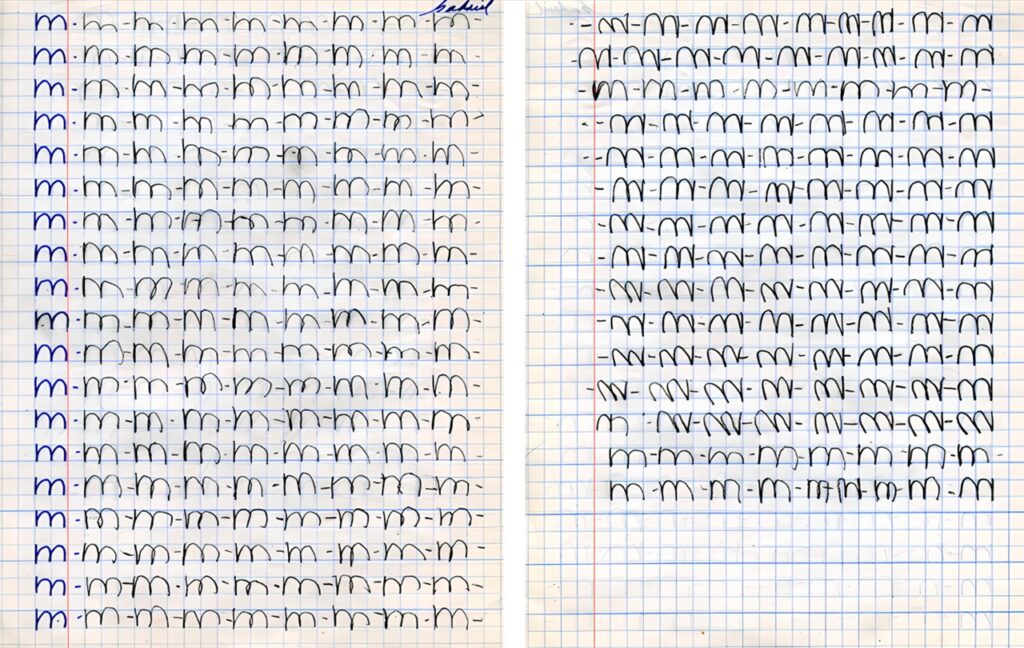 Gabriel
m-m-m-m-m-m-m-m-m-
m-m-m-m-m-m-m-m-m-
m-m-m-m-m-m-m-m-m-
m-m-m-m-m-m-m-m-m-
m-m-m-m-m-m-m-m-m-
m-m-m-m-m-m-m-m-m-
m-m-m-m-m-m-m-m-m-
m-m-m-m-m-m-m-m-m-
m-m-m-m-m-m-m-m-m-
m-m-m-m-m-m-m-m-m-
m-m-m-m-m-m-m-m-m-
m-m-m-m-m-m-m-m-m-
m-m-m-m-m-m-m-m-m-
m-m-m-m-m-m-m-m-m-
m-m-m-m-m-m-m-m-m-
m-m-m-m-m-m-m-m-m-
m-m-m-m-m-m-m-m-m-
m-m-m-m-m-m-m-m-m-
m-m-m-m-m-m-m-m-m-
-m-m-m-m-m-m-m-m-m
-m-m-m-m-m-m-m-m-m
-m-m-m-m-m-m-m-m-
-m-m-m-m-m-m-m-m
--m-m-m-m-m-m-m-m
-m-m-m-m-m-m-m-m
-m-m-m-m-m-m-m-m
-m-m-m-m-m-m-m-m
-m-m-m-m-m-m-m-m
-m-m-m-m-m-m-m-m
-m-m-m-m-m-m-m-m
-m-m-m-m-m-m-m-m
m-m-m-m-m-m-m-m
m-m-m-m-m-m-m-m-
m-m-m-m-m-m-m-m-m